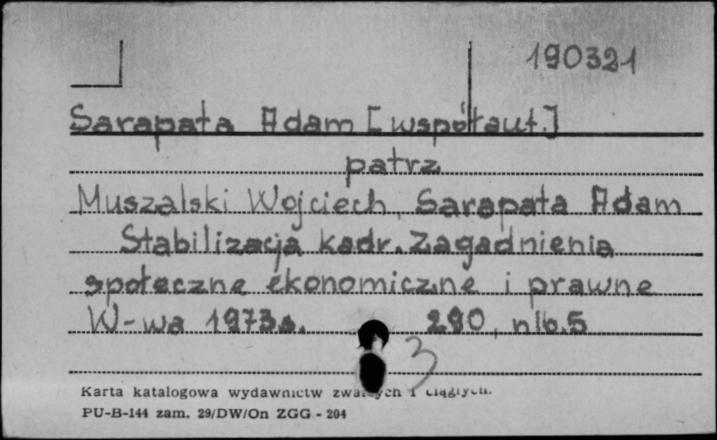 190321
Sarapata Adam [współaut.]
patrz
Muszalski Wojciech, Sarapata Adam
Stabilizacja kadr. Zagadnienia
społeczne ekonomiczne i prawne
W-wa 1973 s. 290, nlb. 5
3
Karta katalogowa wydawnictw zwartych i ciągłych.
PU-B-144 zam. 29/DW/On ZGG - 204